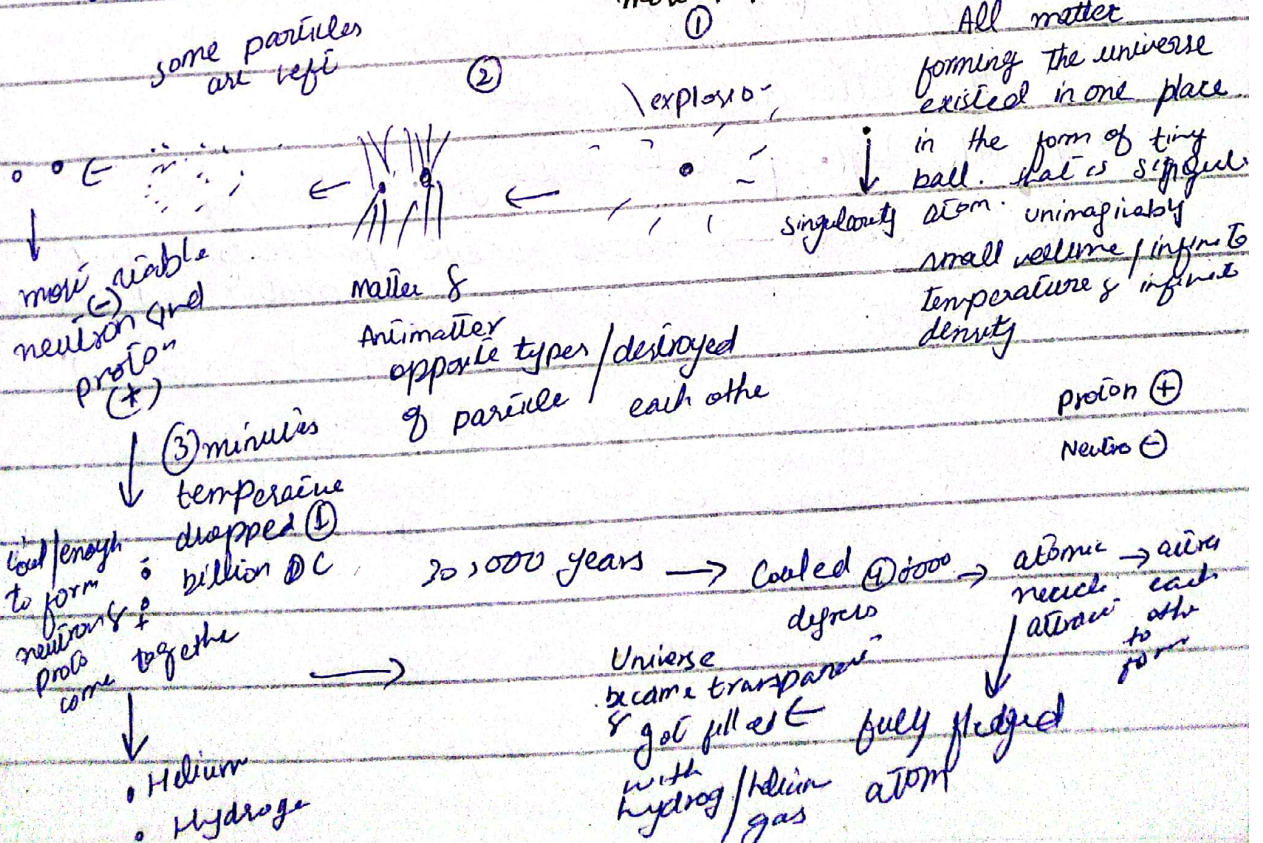 ①
All matter
forming the universe
existed in one place
in the form of tiny
ball. that is
singularity atom. unimaginably
small volume / infinite
temperature & infinite
density
\ explosio-
②
some particles
are left
Matter &
Antimatter
opposite types / destroyed
of particle / each othe
more stable
(-)
neutron and
proton
(+)
Proton ⊕
Neutro ⊖
③ minutes
temperature
dropped ①
billion DC
enough
to form
neutron &
proto
come togethe
• Helium
• Hydroge
000 years → Cooled
degrees
→ atomic
nuclei
attract
→
each
othe
to
form
fully fledged
atom
Universe
became transparent
& got filled ←
with
hydrog / helium
gas